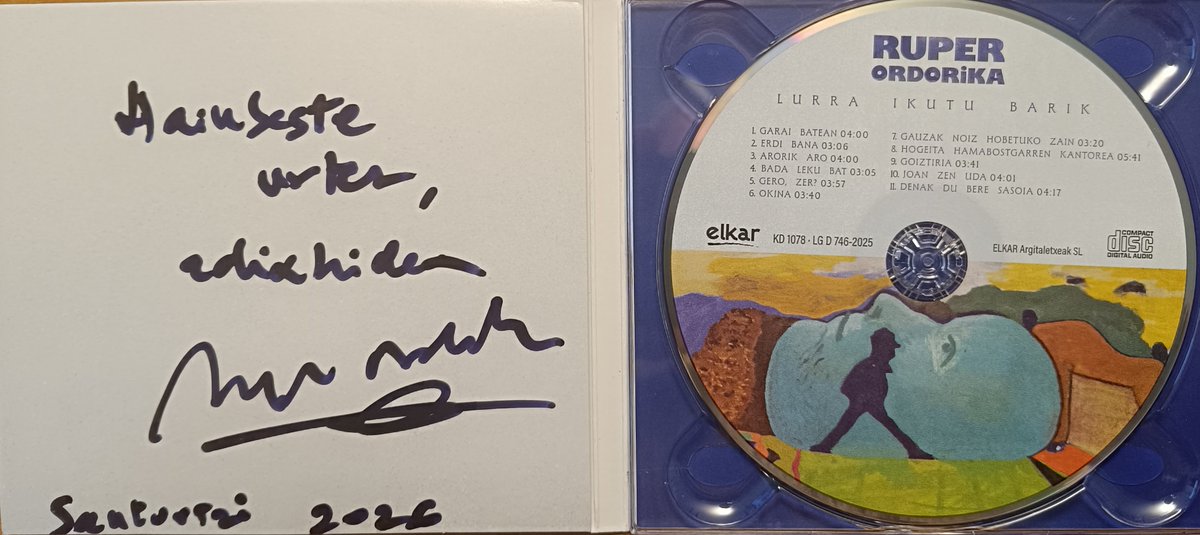 Hainbeste
urtez,
adixkidea
Santurtzi 2026
RUPER
ORDORiKA
LURRA IKUTU BARIK
1. GARAI BATEAN 04:00
2. ERDI BANA 03:06
3. ARORIK ARO 04:00
4. BADA LEKU BAT 03:05
5. GERO, ZER? 03:57
6. OKINA 03:40
7. GAUZAK NOIZ HOBETUKO ZAIN 03:20
8. HOGEITA HAMABOSTGARREN KANTOREA 05:41
9. GOIZTIRIA 03:41
10. JOAN ZEN UDA 04:01
11. DENAK DU BERE SASOIA 04:17
elkar KD 1078 · LG D 746-2025
ELKAR Argitaletxeak SL
COMPACT
disc
DIGITAL AUDIO